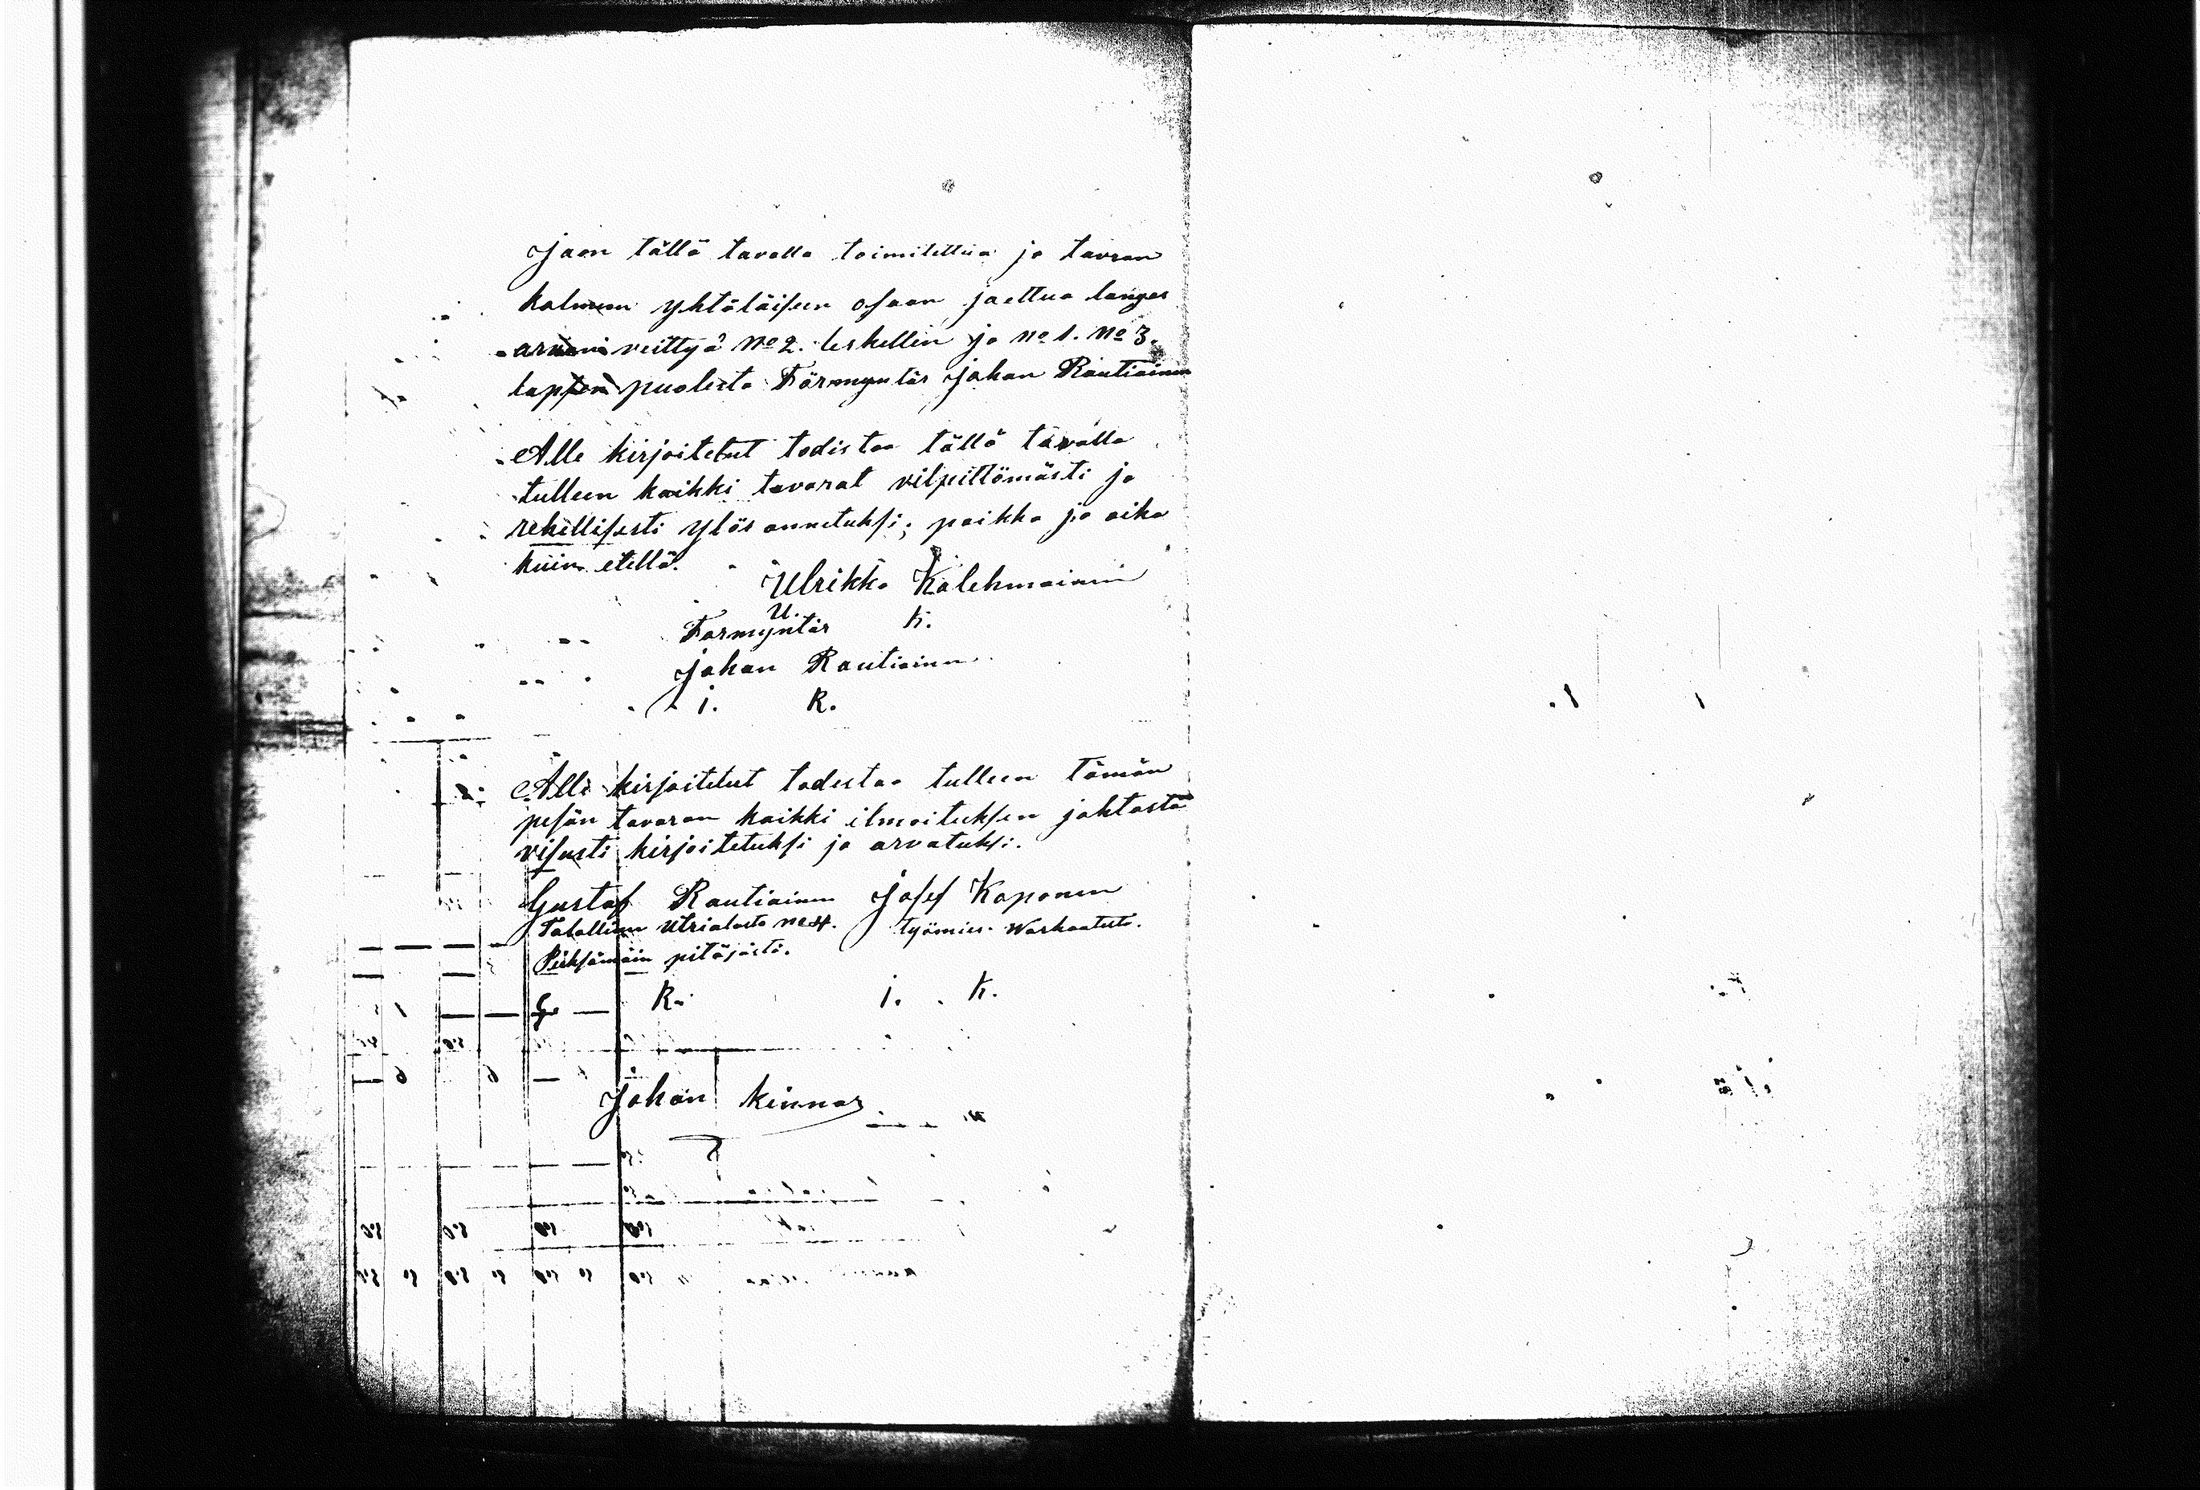 Jaon tällä tavalla toimitettua ja tavran
kolmeen yhtäläiseen osaan jaettua langes
arvan veittyä No 2. leskellen ja No 1. No 3.
lapsen puolesta Förmyntär Johan Rautiainen
Alle kirjoitetut todistaa tällä tavalla
tulleen kaikki tavarat vilpittömästi ja
rehellisesti ylös annetuksi; paikka ja aika
kuin etellä.
Ulrikka Kolehmainen
U. K.
Formyntär
Johan Rautiainen
J. R.
Alle kirjoitetut todistaa tulleen tämän
pesän tavaran kaikki ilmoituksen johtosta
visusti kirjoitetuksi ja arvatuksi.
Gustaf Rautiainen Josef Koponen
Talollinen Utrialasta No 4. työmies Warkaudesta.
Pieksämäin pitäjästä.
G. R. J. K.
Johan Kinnar